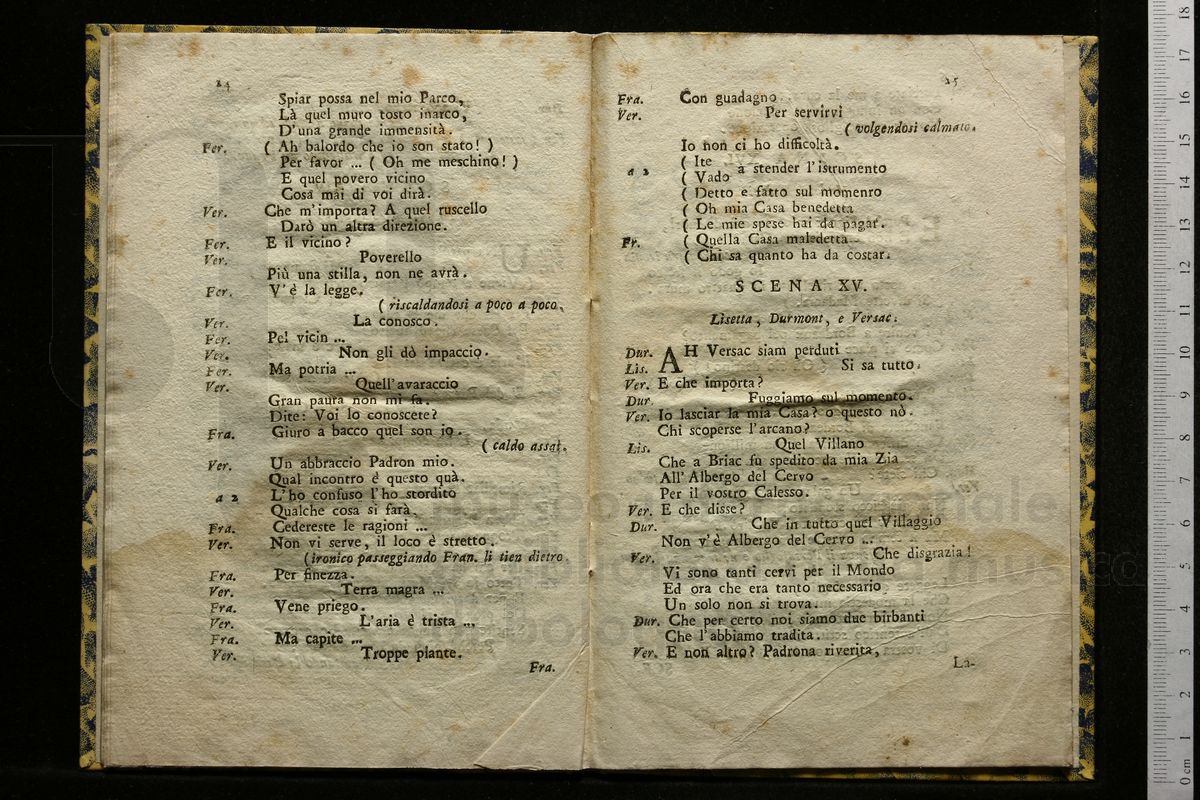 24
Spiar possa nel mio Parco,
Là quel muro tosto inarco,
D'una grande immensità.
Fer. ( Ah balordo che io son stato! )
Per favor ... ( Oh me meschino! )
E quel povero vicino
Cosa mai di voi dirà.
Ver. Che m'importa? A quel ruscello
Darò un altra direzione.
Fer. E il vicino?
Ver. Poverello
Più una stilla, non ne avrà.
Fer. V'è la legge.
( riscaldandosi a poco a poco.
Ver. La conosco.
Fer. Pel vicin ...
Ver. Non gli dò impaccio.
Fer. Ma potria ...
Ver. Quell'avaraccio
Gran paura non mi fa.
Dite: Voi lo conoscete?
Fra. Giuro a bacco quel son io.
( caldo assai.
Ver. Un abbraccio Padron mio.
Qual incontro è questo quà.
a 2 L'ho confuso l'ho stordito
Qualche cosa si farà.
Fra. Cedereste le ragioni ...
Ver. Non vi serve, il loco è stretto.
(ironico passeggiando Fran. li tien dietro
Fra. Per finezza.
Ver. Terra magra ...
Fra. Vene priego.
Ver. L'aria è trista ...
Fra. Ma capite ...
Ver. Troppe piante.
Fra.
25
Fra. Con guadagno
Ver. Per servirvi
( volgendosi calmato.
Io non ci ho difficoltà.
( Ite
a 2 a stender l'istrumento
( Vado
( Detto e fatto sul momenro
( Oh mia Casa benedetta
( Le mie spese hai da pagar.
Fr. ( Quella Casa maledetta
( Chi sa quanto ha da costar.
SCENA XV.
Lisetta, Durmont, e Versac.
Dur. AH Versac siam perduti
Lis. Si sa tutto.
Ver. E che importa?
Dur. Fuggiamo sul momento.
Ver. Io lasciar la mia Casa? o questo nò.
Chi scoperse l'arcano?
Lis. Quel Villano
Che a Briac fu spedito da mia Zia
All'Albergo del Cervo
Per il vostro Calesso.
Ver. E che disse?
Dur. Che in tutto quel Villaggio
Non v'è Albergo del Cervo ...
Ver. Che disgrazia!
Vi sono tanti cervi per il Mondo
Ed ora che era tanto necessario
Un solo non si trova.
Dur. Che per certo noi siamo due birbanti
Che l'abbiamo tradita.
Ver. E non altro? Padrona riverita,
La-